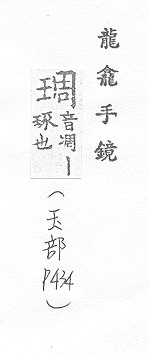 龍龕手鏡
琱音凋丨
琢也
(玉部
P434)